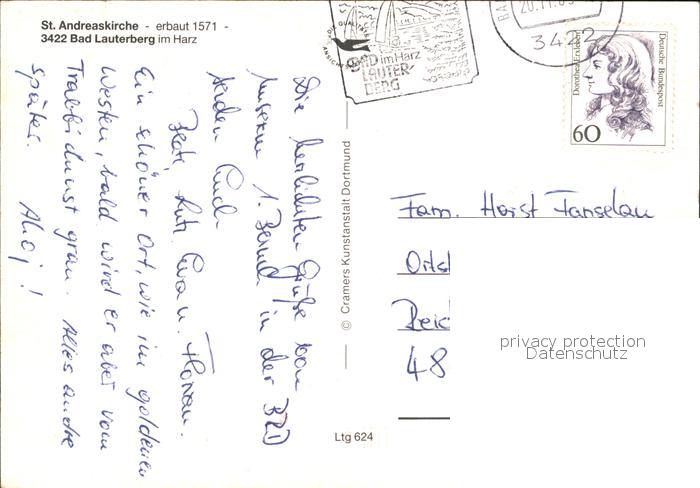 St. Andreaskirche - erbaut 1571 -
3422 Bad Lauterberg im Harz
Die herzlichsten Grüße von
unserem 1. Besuch in der BRD
senden Euch
Beate, Lutz, Eva u. Florian.
Ein schöner Ort, wie im goldenen
Westen, bald wird er aber vom
Trabbidunst grau. Alles andre
später. Ahoj!
© Cramers Kunstanstalt Dortmund
Ltg 624
BAD im Harz
LAUTER-
BERG
20.11.
3422
Dorothea Erxleben
Deutsche Bundespost
60
Fam. Horst Fanselau
Orts
Reic
48
privacy protection
Datenschutz